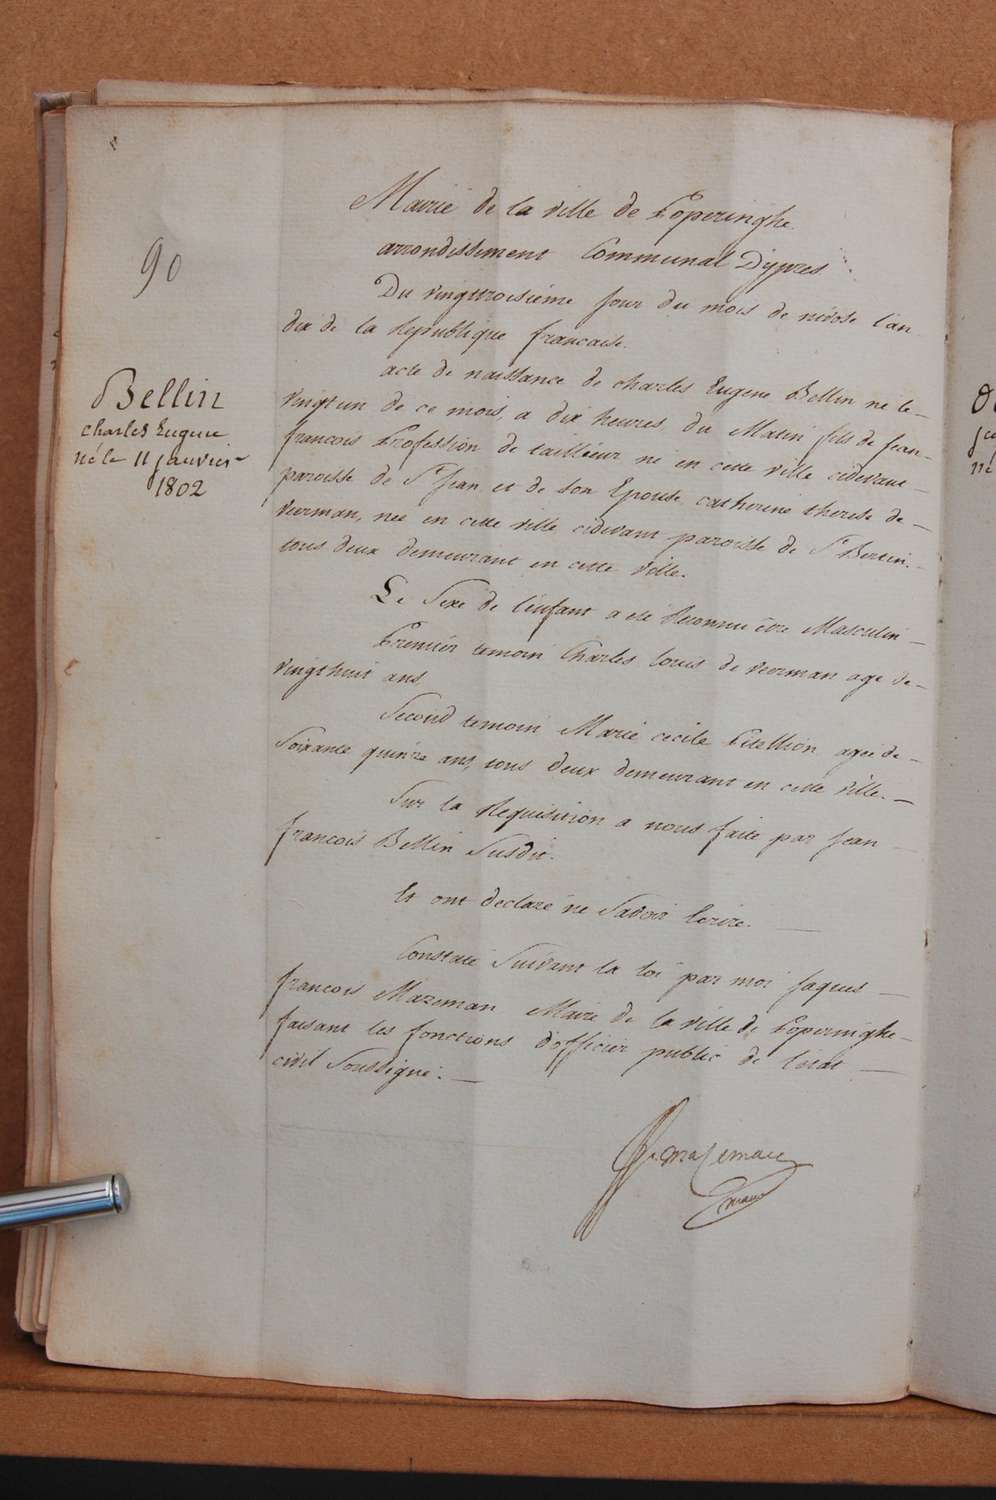 90
Bellin
charles Eugene
né le 11 janvier
1802
Mairie de la ville de Poperinghe
arrondissement Communal Dÿpres
Du vingttroisiéme jour du mois de nivose l'an
dix de la Republique francaise.
acte de naissance de charles Eugene Bellin né le-
vingt un de ce mois, a dix heures du Matin fils de jean-
francois Profession de tailleur né en cette ville cidevant-
paroisse de St jean et de son Epouse catherine therese de-
vierman, née en cette ville cidevant paroisse de St Bertin.-
tous deux demeurant en cette ville.
Le Sexe de l'enfant a eté Reconnu être Masculin-
Premier temoin Charles louis de vierman agé de-
vingthuit ans
Second temoin Marie cecile agée de-
Soixante quinze ans, tous deux demeurant en cette ville.-
Sur la Requisition a nous faite par jean-
francois Bellin Susdit.
Et ont declaré ne Savoir Ecrire.-
Constaté Suivant la loi par moi jaques-
francois Mazeman Maire de la ville de Poperinghe-
faisant les fonctions d'officier public de l'etat-
civil Soussigné.-
Mazeman
maire